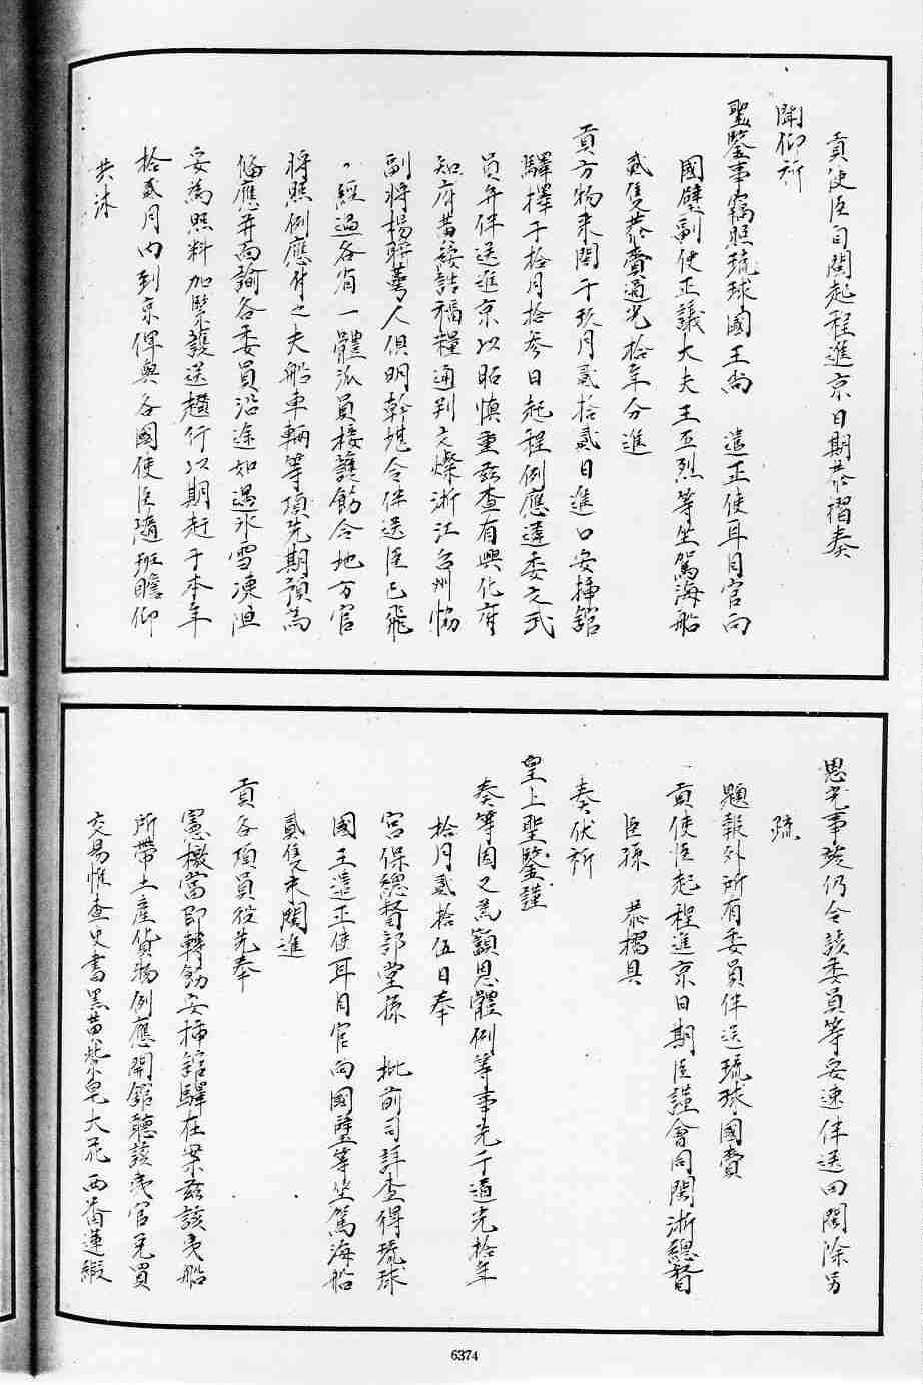 貢使臣自閩起程進京日期恭摺奏
聞仰祈
聖鑒事竊照琉球國王尚　遣正使耳目官向
國璧副使正議大夫王丕烈等坐駕海船
貳隻恭賫道光拾年分進
貢方物来閩于玖月貳拾貳日進口安插館
驛擇于拾月拾叁日起程例應遴委文武
員弁伴送進京以昭慎重茲查有興化府
知府黃綏誥福糧通判文燦浙江台州協
副將楊等人俱明幹堪令伴送臣已飛
咨經過各省一體派員接護飭令地方官
將照例應付之夫船車輛等項先期預為
俻應并面諭各委員沿途如遇氷雪凍阻
妥為照料加緊護送趲行以期赶于本年
拾貳月內到京俾與各國使臣隨班瞻仰
共沐
恩光事竣仍令該委員等妥速伴送回閩除另
疏
題報外所有委員伴送琉球國賫
貢使臣起程進京日期臣謹會同閩浙總督
臣孫　恭摺具
奏伏祈
皇上聖鑒謹
奏等因又為籲恩體例等事先于道光拾年
拾月貳拾伍日奉
宮保總督部堂孫　批前司詳查得琉球
國王遣正使耳目官向國璧等坐駕海船
貳隻來閩進
貢各項員役先奉
憲檄當即轉飭安插館驛在案茲該夷船
所帶土產貨物例應開館聽該夷官免買
交易惟查史書黑黃紫皂大花西番蓮緞
6374